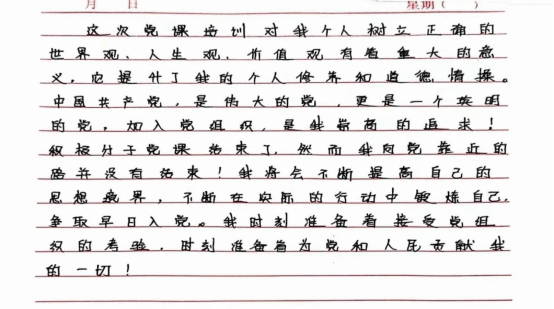 月 日 星期（ ）
这次党课培训对我个人树立正确的
世界观、人生观、价值观有着重大的意
义，它提升了我的个人修养和道德情操。
中国共产党，是伟大的党，更是一个英明
的党，加入党组织，是我崇高的追求！
积极分子党课结束了，然而我向党靠近的
路并没有结束！我将会不断提高自己的
思想境界，不断在实际的行动中锻炼自己，
争取早日入党。我时刻准备着接受党组
织的考验，时刻准备着为党和人民贡献我
的一切！